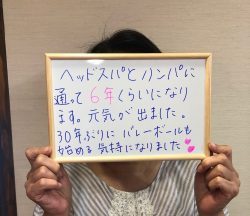 ヘッドスパとリンパに
通って6年くらいになり
ます。元気が出ました。
30年ぶりにバレーボールも
始める気持になりました